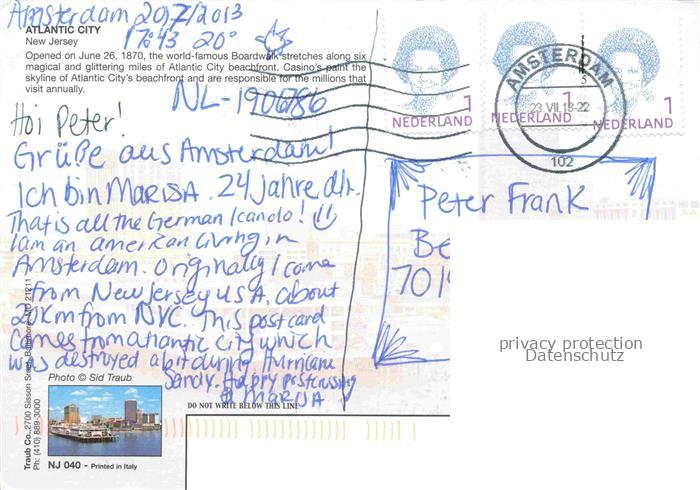 Amsterdam 20/7/2013
17:43 20°
ATLANTIC CITY
New Jersey
Opened on June 26, 1870, the world-famous Boardwalk stretches along six
magical and glittering miles of Atlantic City beachfront. Casino's paint the
skyline of Atlantic City's beachfront and are responsible for the millions that
visit annually.
NL-1906786
Hoi Peter!
Grüße aus Amsterdam!
Ich bin MARISA. 24 Jahre alt.
That is all the German I can do!
I am an american living in
Amsterdam. Originally I come
from New Jersey USA. about
25km from NYC. This postcard
comes from atlantic city which
was destroyed a bit during Hurricane
Sandy. Happy postcrossing
MARISA
1
NEDERLAND
1
NEDERLAND
1
NEDERLAND
AMSTERDAM
23.VII.13-22
5
102
Peter Frank
Be
7019
privacy protection
Datenschutz
Photo © Sid Traub
DO NOT WRITE BELOW THIS LINE
Traub Co., 2700 Sisson Street, Baltimore, MD 21211
Ph: (410) 889-3000
NJ 040 - Printed in Italy